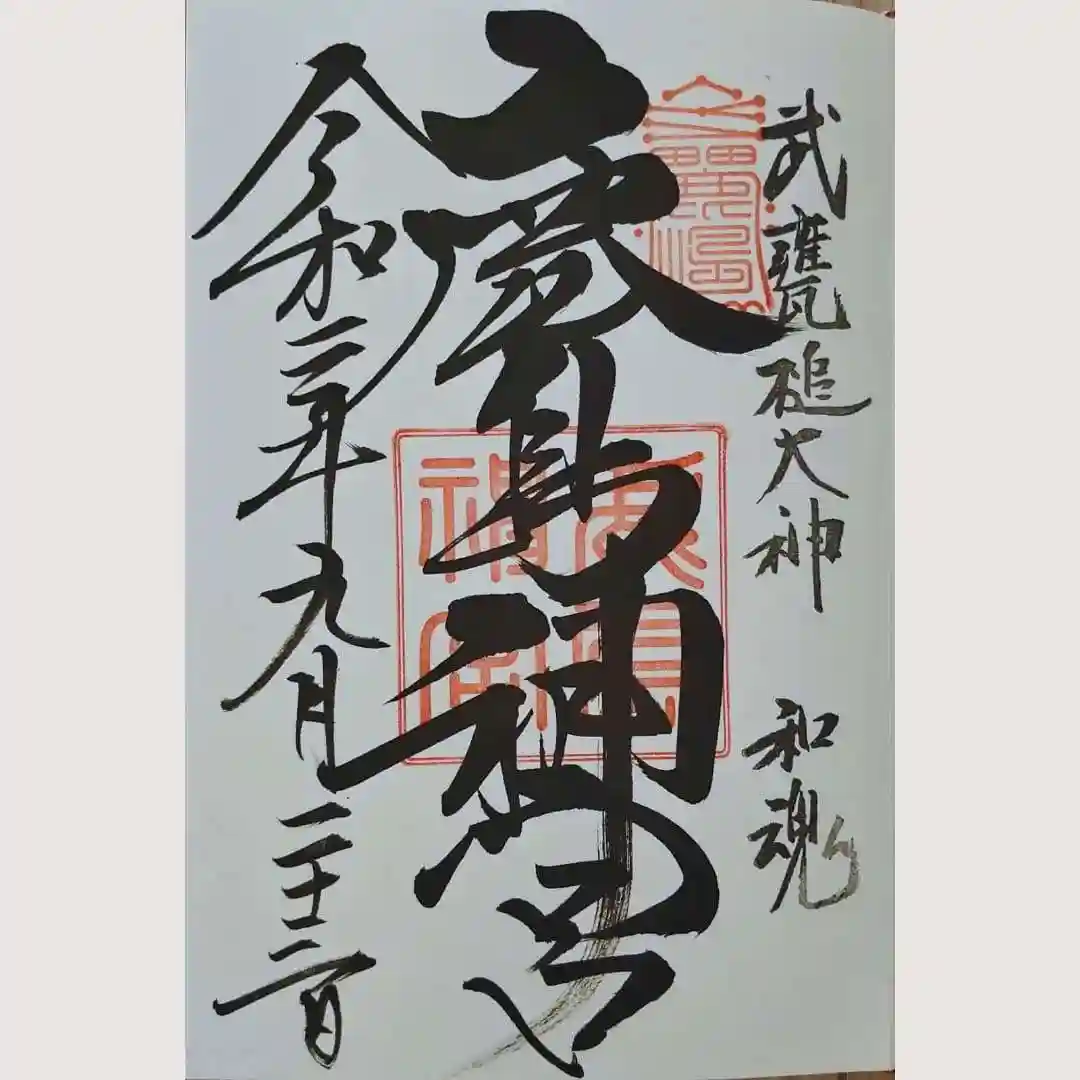 武甕槌大神 和魂
鹿島神宮
令和二年九月二十二日
鹿島
神宮